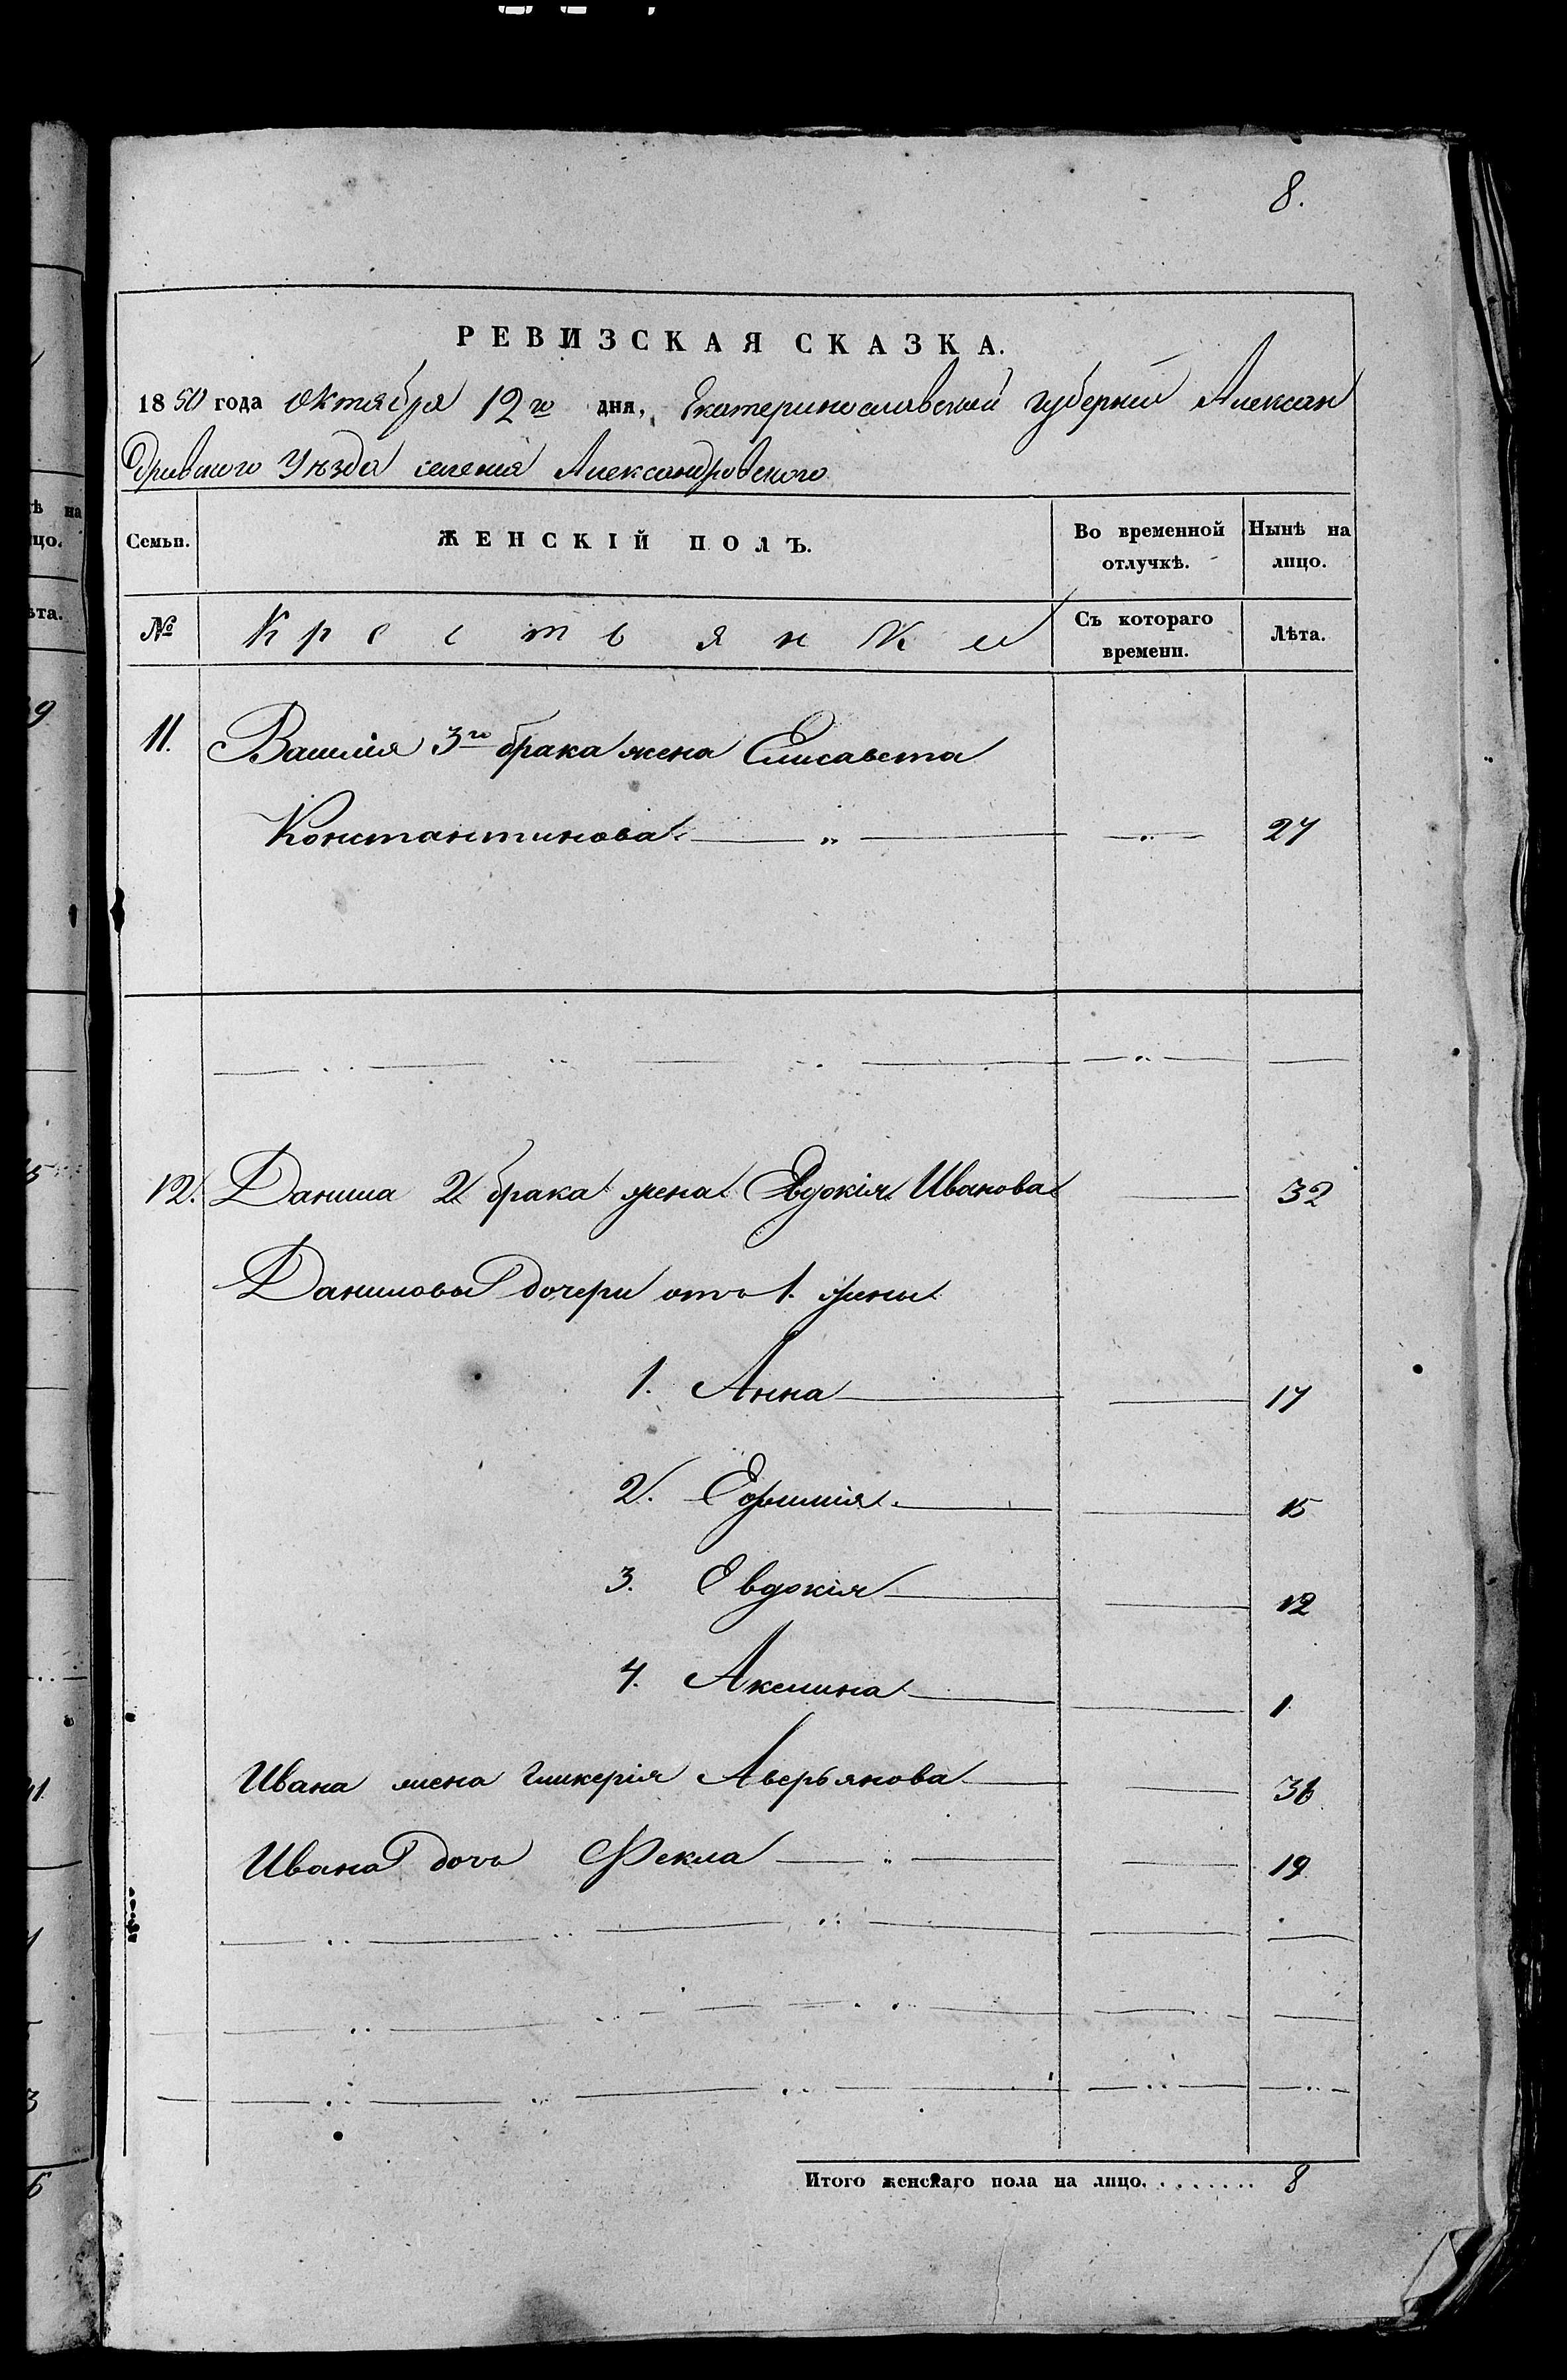 8.
РЕВИЗСКАЯ СКАЗКА.
1850 года Октября 12го дня, Екатеринославской губернiи Алексан
дровского Уѣзда селения Александровского
Семьи. ЖЕНСКIЙ ПОЛЪ. Во временной отлучкѣ. Нынѣ на лицо.
№ Крестьянки Съ котораго времени. Лѣта.
11. Василiя 3го брака жена Елисавета
Константинова 27
12. Данила 2 брака жена Евдокiя Иванова 32
Даниловы дочери отъ 1. жены
1. Анна 17
2. Ефимия 15
3. Евдокiя 12
4. Аксинна 1
Ивана жена Гликерiя Аверьянова 36
Ивана дочь Фекла 12
Итого женскаго пола на лицо. . . . . . . . 8